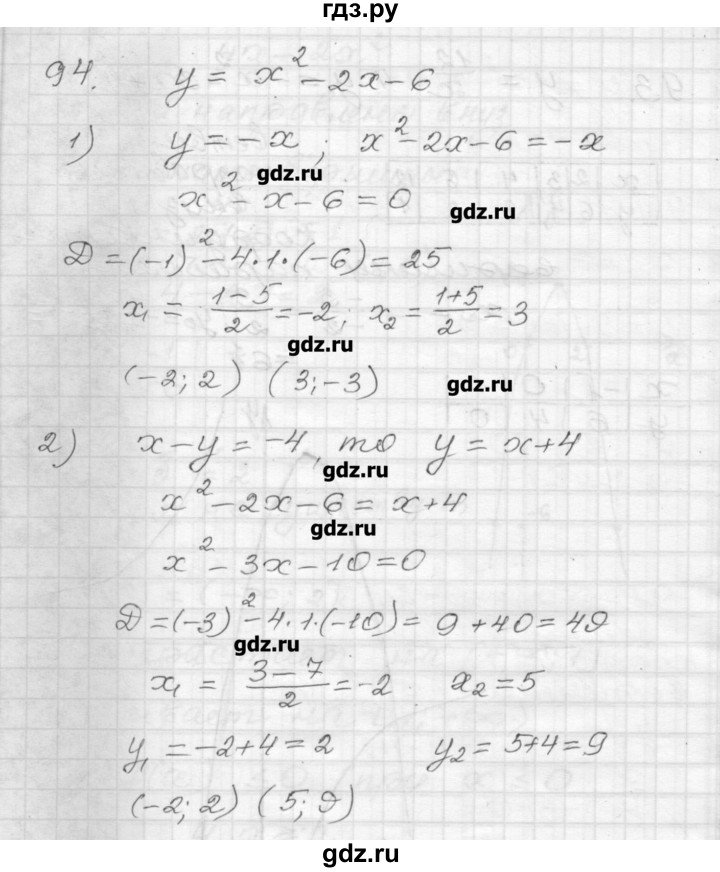 гдз.ру
94. y = x² - 2x - 6
1) y = -x ; x² - 2x - 6 = -x
gdz.ru
x² - x - 6 = 0
gdz.ru
D = (-1)² - 4·1·(-6) = 25
x₁ = (1-5)/2 = -2; x₂ = (1+5)/2 = 3
gdz.ru
(-2; 2) (3; -3)
gdz.ru
2) x - y = -4, то y = x+4
gdz.ru
x² - 2x - 6 = x+4
gdz.ru
x² - 3x - 10 = 0
D = (-3)² - 4·1·(-10) = 9 + 40 = 49
gdz.ru
x₁ = (3-7)/2 = -2 x₂ = 5
y₁ = -2+4 = 2 y₂ = 5+4 = 9
(-2; 2) (5; 9)
gdz.ru